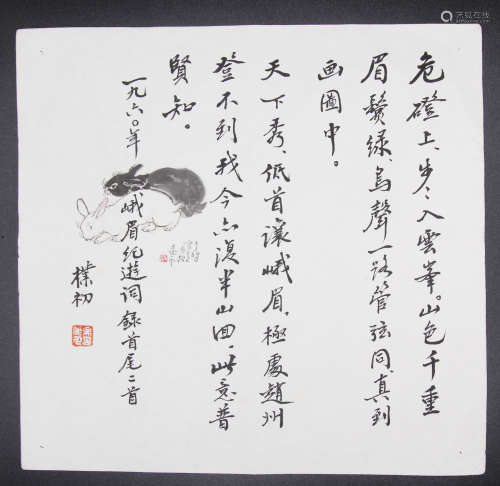 危磴上、步々入雲峯。山色千重
眉鬢綠、鳥聲一路管弦同、真到
画圖中。
天下秀、低首讓峨眉、極處趙州
登不到我今亦復半山回。此意普
賢知。
一九六〇年
峨眉紀遊詞錄首尾二首
樸初